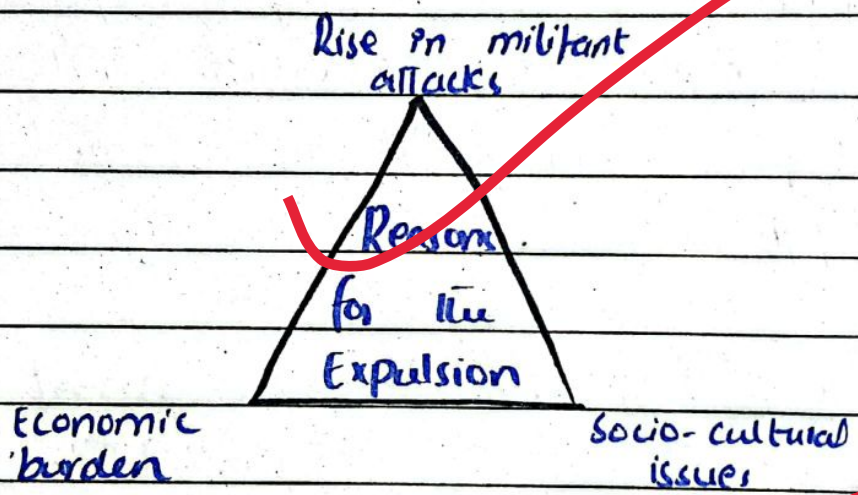 Rise in militant
attacks
Reasons
for the
Expulsion
Economic
burden
socio-cultural
issues